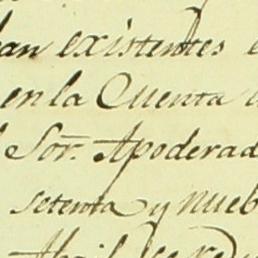 an existentes e
en la Cuenta
Sor. Apoderad
setenta y nueb
Abril